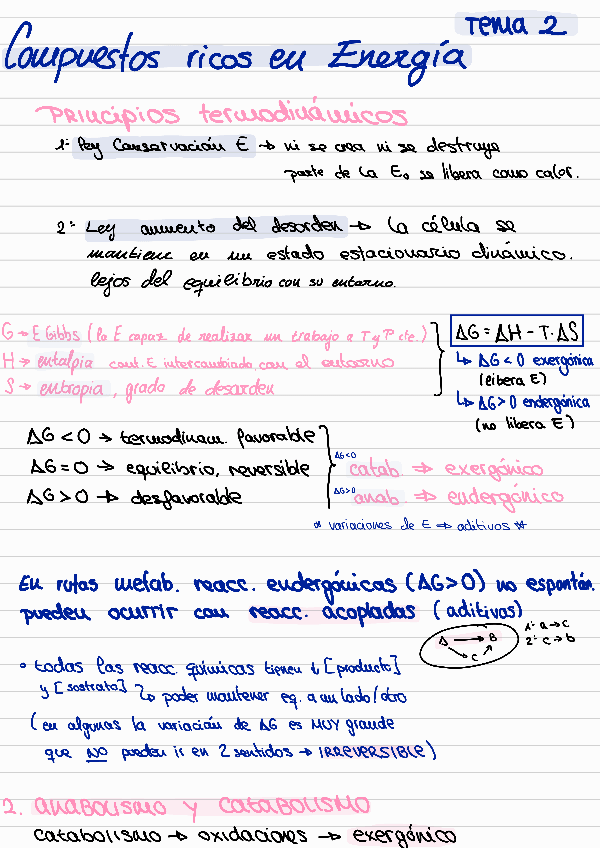 Tema 2
Compuestos ricos en Energía
Principios termodinámicos
1ª Ley Conservación E → ni se crea ni se destruye
parte de la E, se libera como calor.
2ª Ley aumento del desorden → la célula se
mantiene en un estado estacionario dinámico.
lejos del equilibrio con su entorno.
G → E Gibbs (la E capaz de realizar un trabajo a T y P cte.)
H → entalpia cont. E intercambiada con el entorno
S → entropia, grado de desorden
ΔG = ΔH - T·ΔS
↳ ΔG < 0 exergónica
(libera E)
↳ ΔG > 0 endergónica
(no libera E)
ΔG < 0 → termodinam. favorable
ΔG = 0 → equilibrio, reversible
ΔG > 0 → desfavorable
ΔG<0 catab. ⇒ exergónico
ΔG>0 anab. ⇒ endergónico
* variaciones de E → aditivos *
En rutas metab. reacc. endergónicas (ΔG>0) no espontán.
pueden ocurrir con reacc. acopladas (aditivas)
A → B
C
1ª a → c
2ª c → b
• todas las reacc. químicas tienen ↓ [producto]
y [sustrato] ↳ poder mantener eq. a un lado/otro
(en algunas la variación de ΔG es MUY grande
que NO pueden ir en 2 sentidos → IRREVERSIBLE)
2. ANABOLISMO y CATABOLISMO
catabolismo → oxidaciones → exergónico